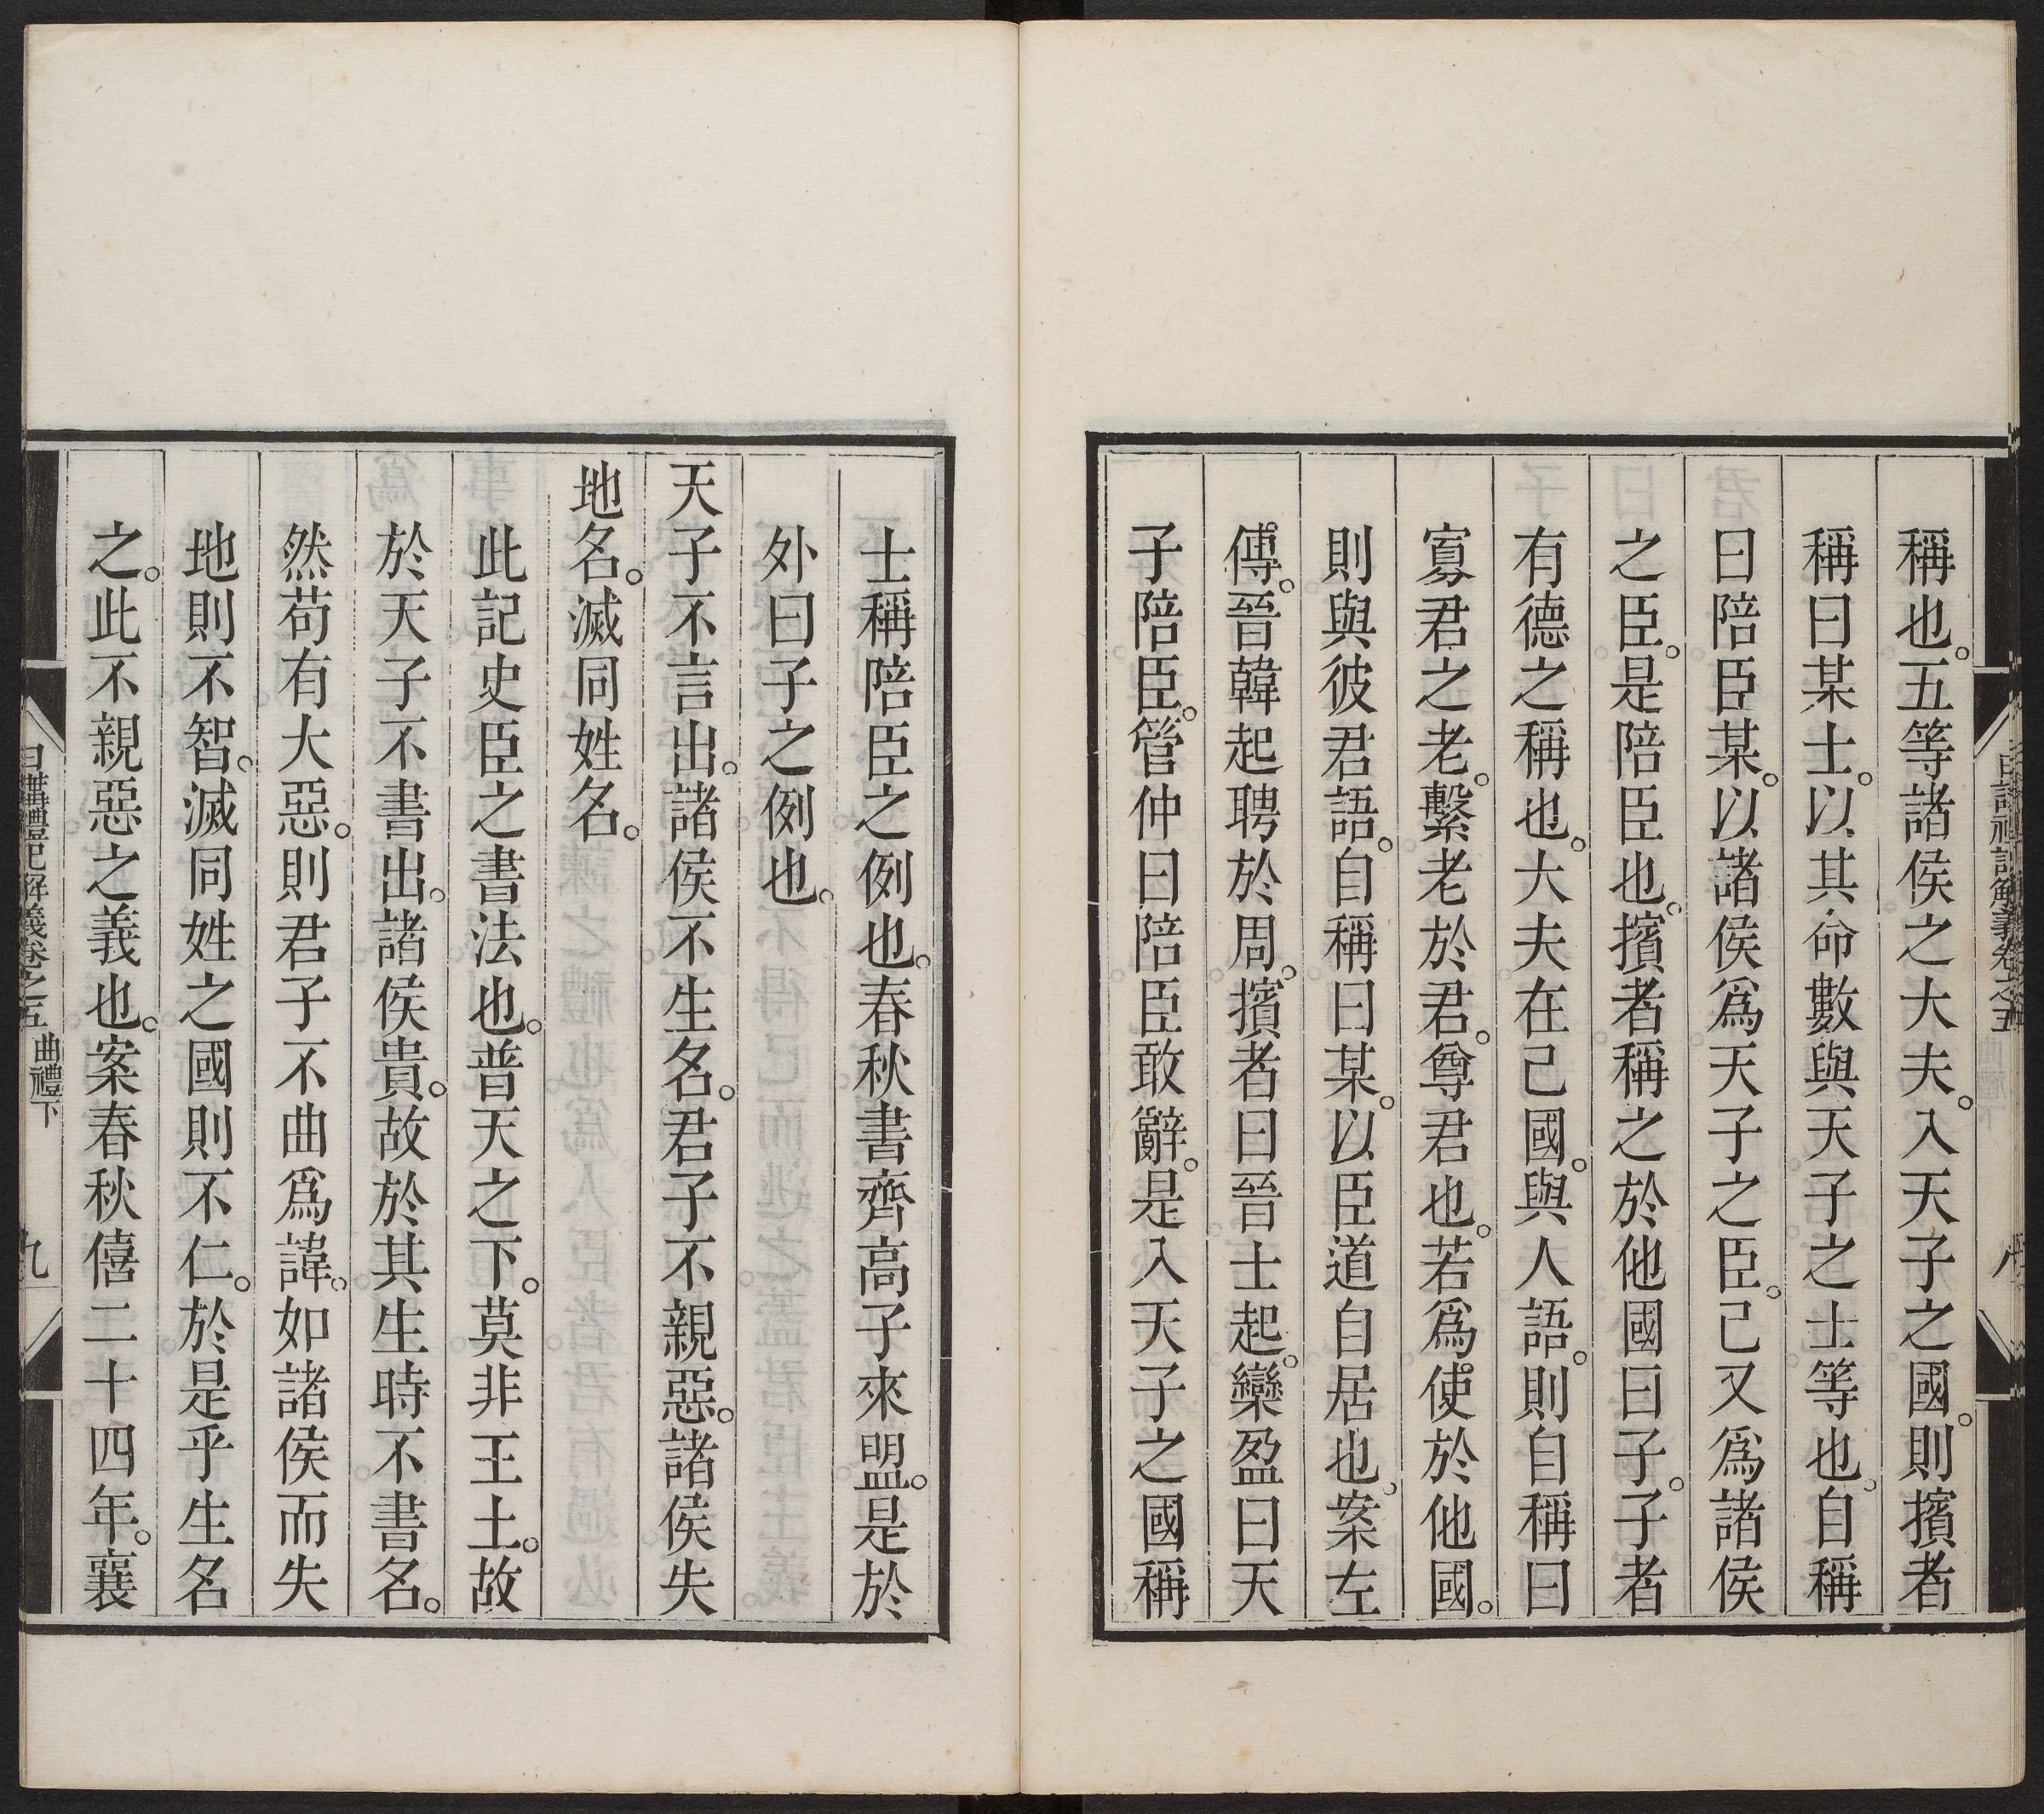 稱也。五等諸侯之大夫。入天子之國。則擯者
稱曰某士。以其命數與天子之士等也。自稱
曰陪臣某。以諸侯爲天子之臣。己又爲諸侯
之臣。是陪臣也。擯者稱之於他國曰子。子者
有德之稱也。大夫在己國。與人語。則自稱曰
寡君之老。繫老於君。尊君也。若爲使於他國。
則與彼君語。自稱曰某。以臣道自居也。案左
傳。晉韓起聘於周。擯者曰晉士起。欒盈曰天
子陪臣。管仲曰陪臣敢辭。是入天子之國稱
士稱陪臣之例也。春秋書齊高子來盟。是於
外曰子之例也。
天子不言出。諸侯不生名。君子不親惡。諸侯失
地名。滅同姓名。
此記史臣之書法也。普天之下。莫非王土。故
於天子不書出。諸侯貴。故於其生時不書名。
然苟有大惡。則君子不曲爲諱。如諸侯而失
地則不智。滅同姓之國則不仁。於是乎生名
之。此不親惡之義也。案春秋僖二十四年。襄
日講禮記解義卷之五 曲禮下 九